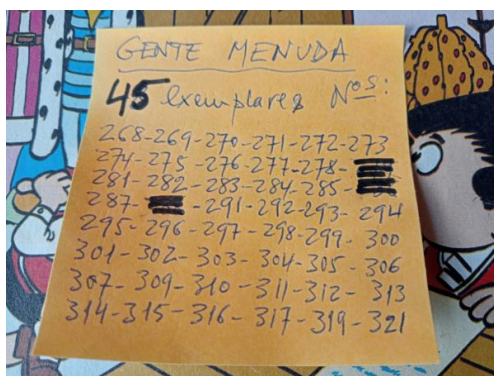 GENTE MENUDA
45 exemplares Nos:
268-269-270-271-272-273
274-275-276-277-278-
281-282-283-284-285-
287- -291-292-293-294
295-296-297-298-299-300
301-302-303-304-305-306
307-309-310-311-312-313
314-315-316-317-319-321